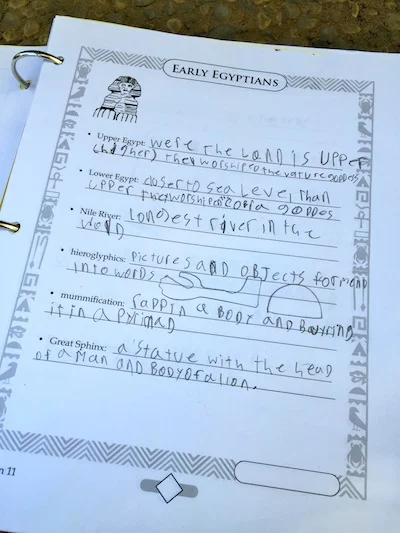 EARLY EGYPTIANS
• Upper Egypt: were The LanD is Upper
(higher) they worshiped the vature goddes
• Lower Egypt: closer to sea level Than
upper they worshiped cobra goddes
• Nile River: Longest river in the
world
• hieroglyphics: pictures and objects formed
into words
• mummification: rapping a BODY and Burying
it in a
• Great Sphinx: a statue with the head
of a man and Body of a lion.
n 11